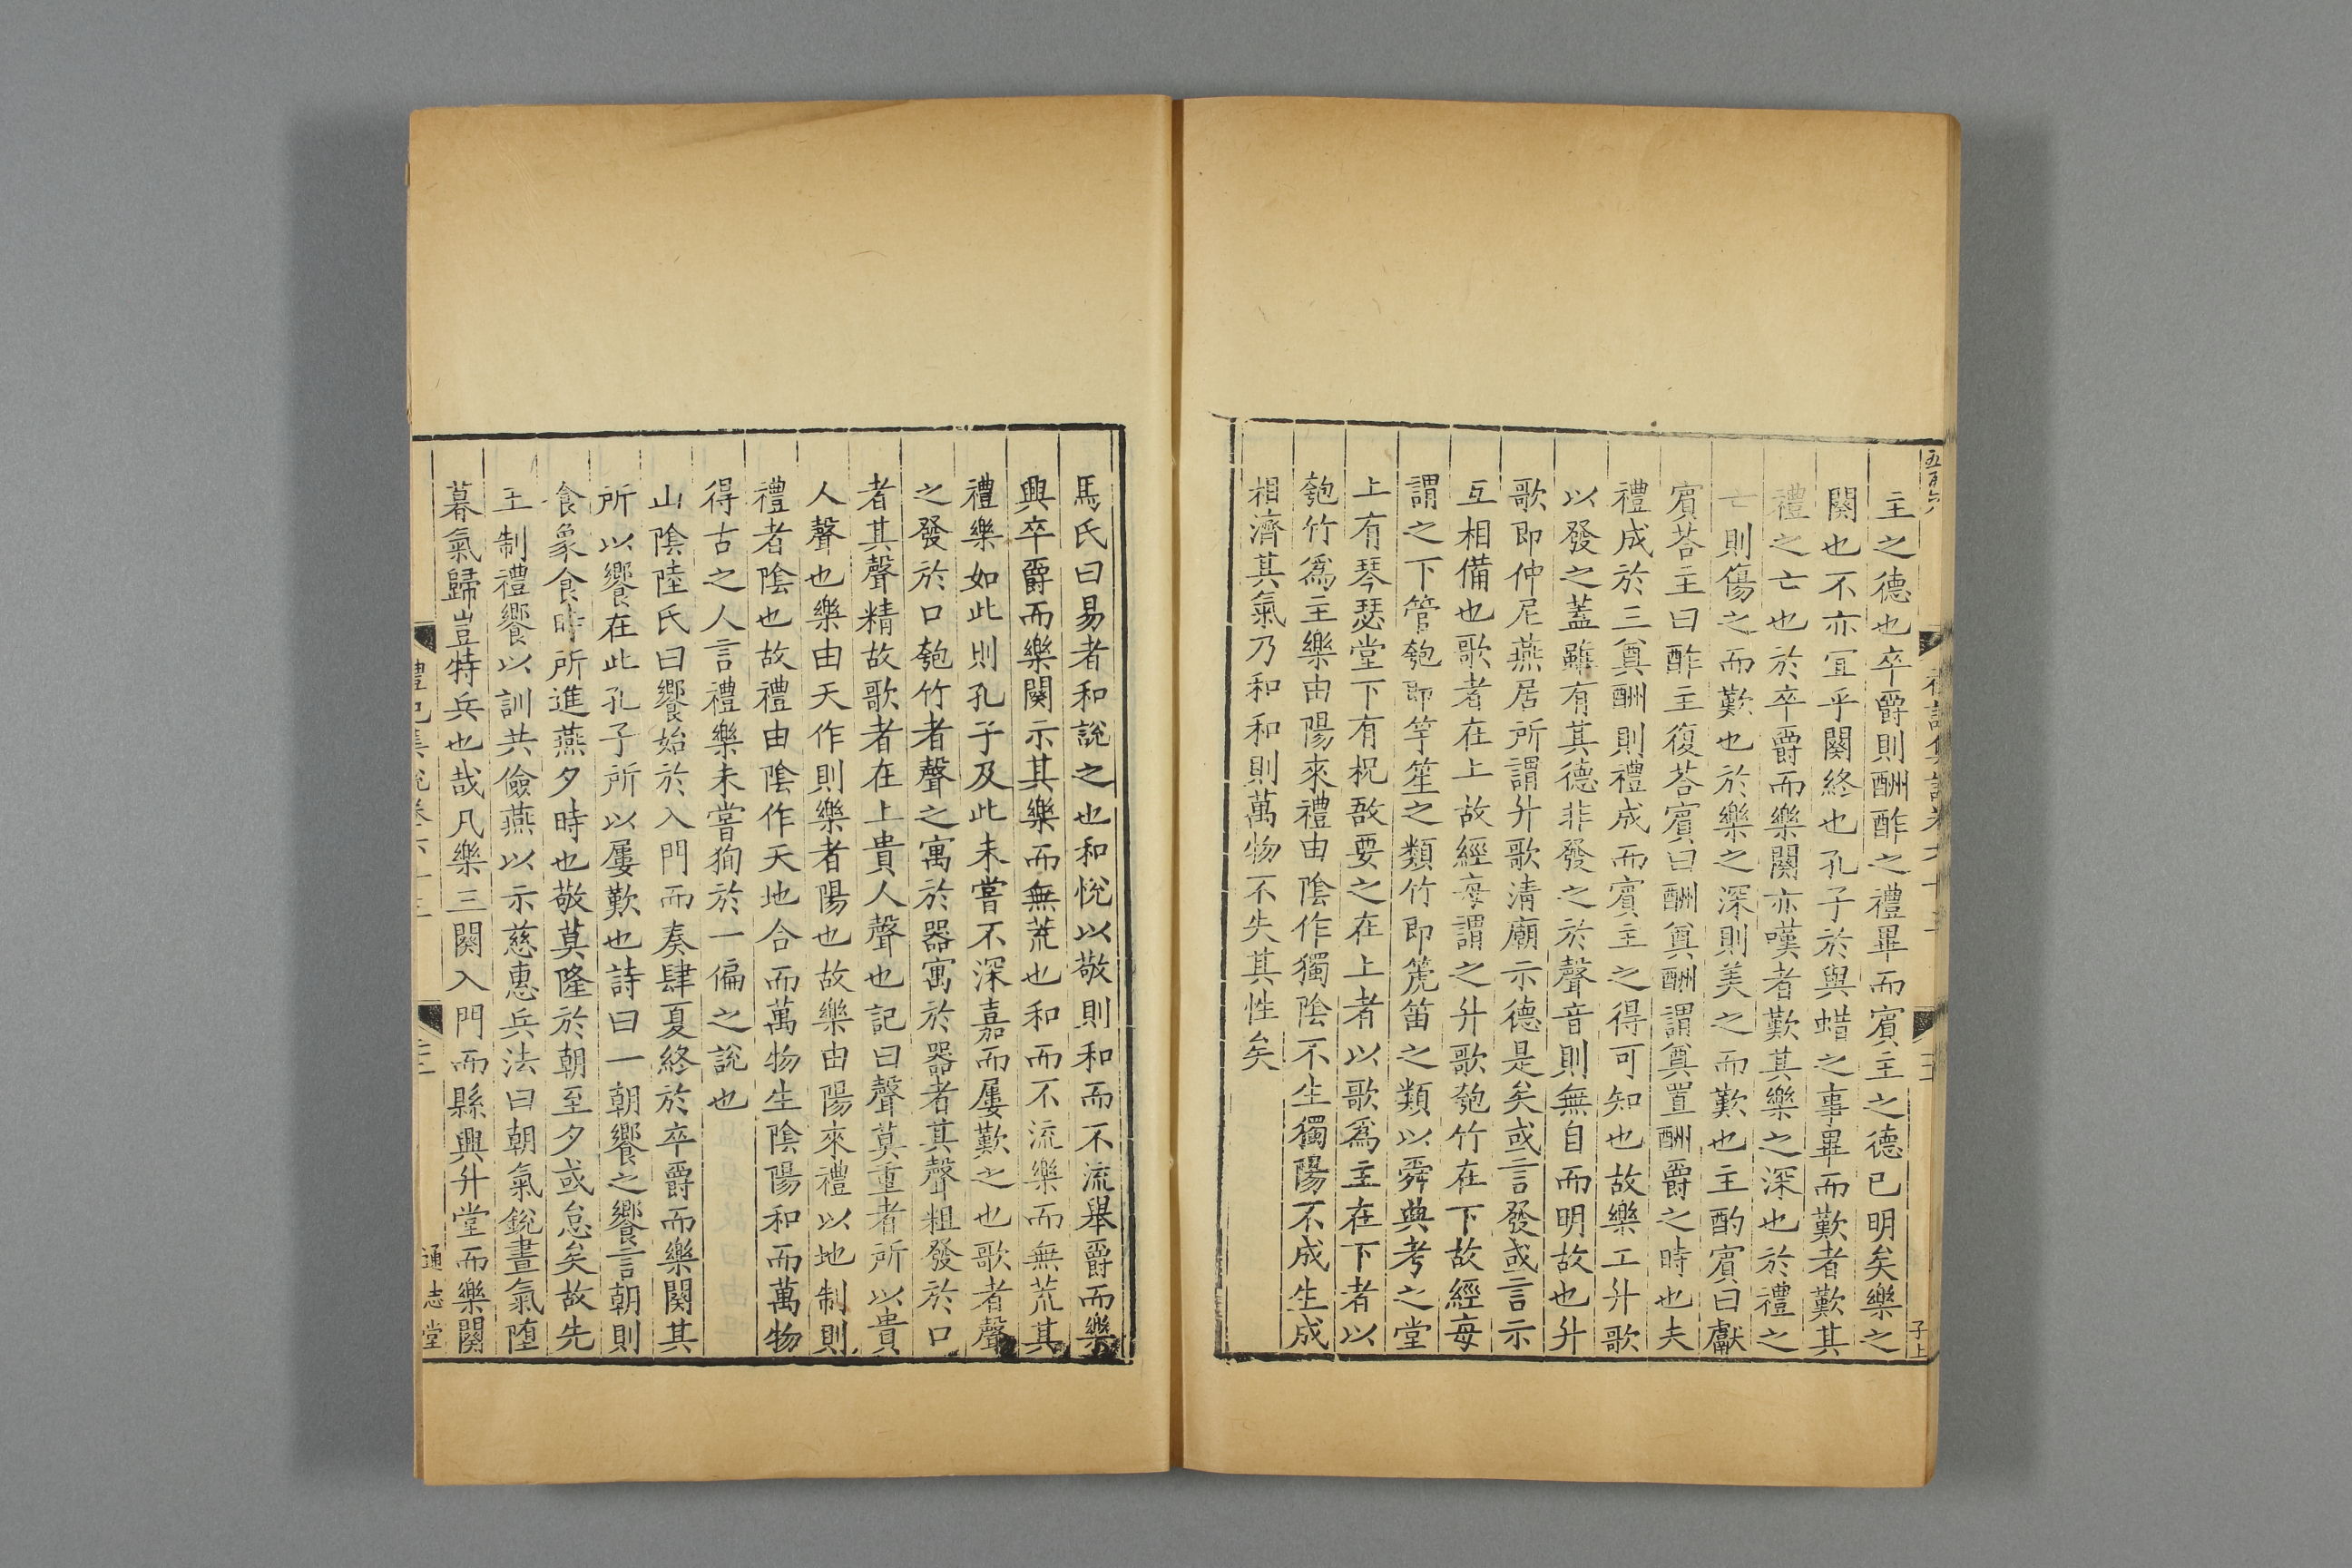 五百六
主之德也卒爵則酬酢之禮畢而賓主之德已明矣樂之
闋也不亦冝乎闋終也孔子於與蜡之事畢而歎者歎其
禮之亡也於卒爵而樂闋亦嘆者歎其樂之深也於禮之
亡則傷之而歎也於樂之深則美之而歎也主酌賓曰獻
賓荅主曰酢主復荅賓曰酬奠酬謂奠置酬爵之時也夫
禮成於三奠酬則禮成而賓主之得可知也故樂工升歌
以發之蓋雖有其德非發之於聲音則無自而明故也升
歌即仲尼燕居所謂升歌清廟示德是矣或言發或言示
互相備也歌者在上故經每謂之升歌匏竹在下故經每
謂之下管匏即竽笙之類竹即箎笛之類以舜典考之堂
上有琴瑟堂下有柷敔要之在上者以歌爲主在下者以
匏竹爲主樂由陽來禮由陰作獨陰不生獨陽不成生成
相濟其氣乃和和則萬物不失其性矣
子上
馬氏曰易者和說之也和悅以敬則和而不流舉爵而樂
興卒爵而樂闋示其樂而無荒也和而不流樂而無荒其
禮樂如此則孔子及此未嘗不深嘉而屢歎之也歌者聲
之發於口匏竹者聲之寓於器寓於器者其聲粗發於口
者其聲精故歌者在上貴人聲也記曰聲莫重者所以貴
人聲也樂由天作則樂者陽也故樂由陽來禮以地制則
禮者陰也故禮由陰作天地合而萬物生陰陽和而萬物
得古之人言禮樂未嘗狥於一偏之說也
山陰陸氏曰饗始於入門而奏肆夏終於卒爵而樂闋其
所以饗在此孔子所以屢歎也詩曰一朝饗之饗言朝則
食象食時所進燕夕時也敬莫隆於朝至夕或怠矣故先
王制禮饗以訓共儉燕以示慈惠兵法曰朝氣銳晝氣堕
暮氣歸豈特兵也哉凡樂三闋入門而縣興升堂而樂闋
禮記集說卷六十三
通志堂